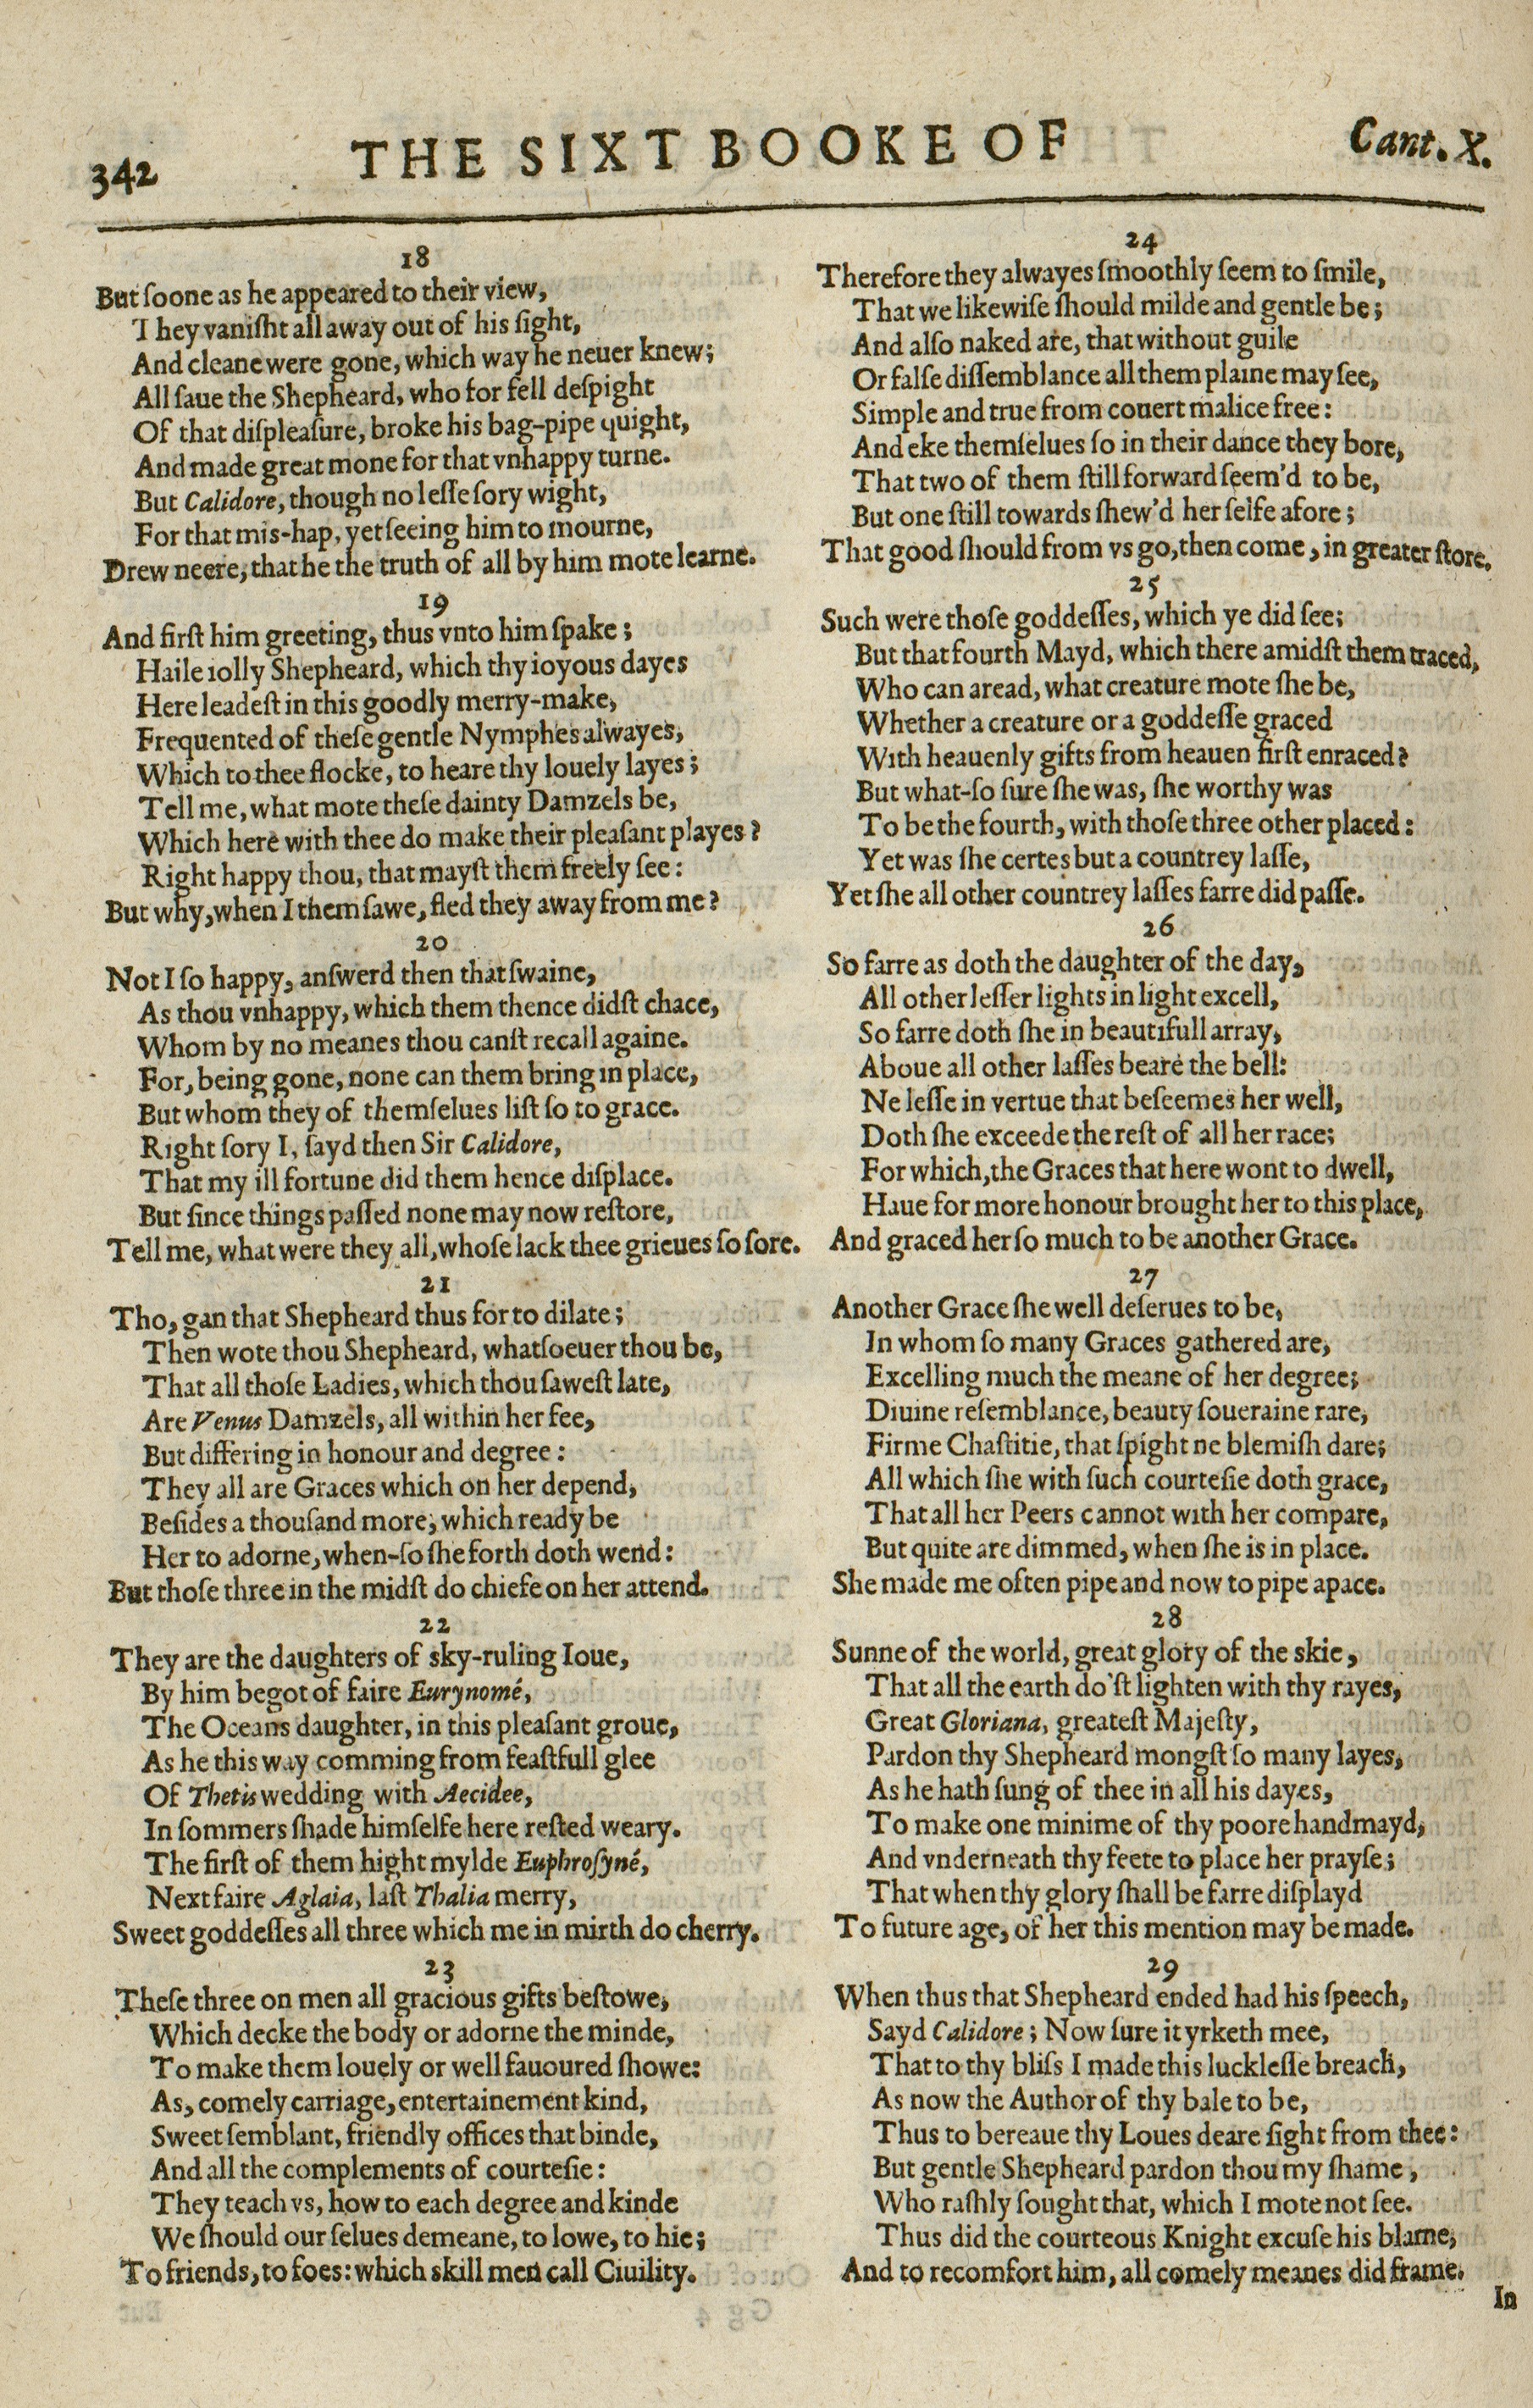 342
THE SIXT BOOKE OF
Cant. X.
18
But ſoone as he appeared to their view,
They vaniſht all away out of his ſight,
And cleane were gone, which way he neuer knew;
All ſaue the Shepheard, who for fell deſpight
Of that diſpleaſure, broke his bag-pipe quight,
And made great mone for that vnhappy turne.
But Calidore, though no leſſe ſory wight,
For that mis-hap, yet ſeeing him to mourne,
Drew neere, that he the truth of all by him mote learne.
19
And firſt him greeting, thus vnto him ſpake;
Haile iolly Shepheard, which thy ioyous dayes
Here leadeſt in this goodly merry-make,
Frequented of theſe gentle Nymphes alwayes,
Which to thee flocke, to heare thy louely layes;
Tell me, what mote theſe dainty Damzels be,
Which here with thee do make their pleaſant playes?
Right happy thou, that mayſt them freely ſee:
But why, when I them ſawe, fled they away from me?
20
Not I ſo happy, anſwerd then that ſwaine,
As thou vnhappy, which them thence didſt chace,
Whom by no meanes thou canſt recall againe.
For, being gone, none can them bring in place,
But whom they of themſelues liſt ſo to grace.
Right ſory I, ſayd then Sir Calidore,
That my ill fortune did them hence diſplace.
But ſince things paſſed none may now reſtore,
Tell me, what were they all, whoſe lack thee grieues ſo ſore.
21
Tho, gan that Shepheard thus for to dilate;
Then wote thou Shepheard, whatſoeuer thou be,
That all thoſe Ladies, which thou ſaweſt late,
Are Venus Damzels, all within her fee,
But differing in honour and degree:
They all are Graces which on her depend,
Beſides a thouſand more, which ready be
Her to adorne, when-ſo ſhe forth doth wend:
But thoſe three in the midſt do chiefe on her attend.
22
They are the daughters of sky-ruling Ioue,
By him begot of faire Eurynomé,
The Oceans daughter, in this pleaſant groue,
As he this way comming from feaſtfull glee
Of Thetis wedding with Aecidee,
In ſommers ſhade himſelfe here reſted weary.
The firſt of them hight mylde Euphroſyné,
Next faire Aglaia, laſt Thalia merry,
Sweet goddeſſes all three which me in mirth do cherry.
23
Theſe three on men all gracious gifts beſtowe,
Which decke the body or adorne the minde,
To make them louely or well fauoured ſhowe:
As, comely carriage, entertainement kind,
Sweet ſemblant, friendly offices that binde,
And all the complements of courteſie:
They teach vs, how to each degree and kinde
We ſhould our ſelues demeane, to lowe, to hie;
To friends, to foes: which skill men call Ciuility.
24
Therefore they alwayes ſmoothly ſeem to ſmile,
That we likewiſe ſhould milde and gentle be;
And alſo naked are, that without guile
Or falſe diſſemblance all them plaine may ſee,
Simple and true from couert malice free:
And eke themſelues ſo in their dance they bore,
That two of them ſtill forward ſeem'd to be,
But one ſtill towards ſhew'd her ſelfe afore;
That good ſhould from vs go, then come, in greater ſtore.
25
Such were thoſe goddeſſes, which ye did ſee;
But that fourth Mayd, which there amidſt them traced,
Who can aread, what creature mote ſhe be,
Whether a creature or a goddeſſe graced
With heauenly gifts from heauen firſt enraced?
But what-ſo ſure ſhe was, ſhe worthy was
To be the fourth, with thoſe three other placed:
Yet was ſhe certes but a countrey laſſe,
Yet ſhe all other countrey laſſes farre did paſſe.
26
So farre as doth the daughter of the day,
All other leſſer lights in light excell,
So farre doth ſhe in beautifull array,
Aboue all other laſſes beare the bell:
Ne leſſe in vertue that beſeemes her well,
Doth ſhe exceede the reſt of all her race;
For which, the Graces that here wont to dwell,
Haue for more honour brought her to this place,
And graced her ſo much to be another Grace.
27
Another Grace ſhe well deſerues to be,
In whom ſo many Graces gathered are,
Excelling much the meane of her degree;
Diuine reſemblance, beauty ſoueraine rare,
Firme Chaſtitie, that ſpight ne blemiſh dare;
All which ſhe with ſuch courteſie doth grace,
That all her Peers cannot with her compare,
But quite are dimmed, when ſhe is in place.
She made me often pipe and now to pipe apace.
28
Sunne of the world, great glory of the skie,
That all the earth do'ſt lighten with thy rayes,
Great Gloriana, greateſt Majeſty,
Pardon thy Shepheard mongſt ſo many layes,
As he hath ſung of thee in all his dayes,
To make one minime of thy poore handmayd,
And vnderneath thy feete to place her prayſe;
That when thy glory ſhall be farre diſplayd
To future age, of her this mention may be made.
29
When thus that Shepheard ended had his ſpeech,
Sayd Calidore; Now ſure it yrketh mee,
That to thy bliſs I made this luckleſſe breach,
As now the Author of thy bale to be,
Thus to bereaue thy Loues deare ſight from thee:
But gentle Shepheard pardon thou my ſhame,
Who raſhly ſought that, which I mote not ſee.
Thus did the courteous Knight excuſe his blame,
And to recomfort him, all comely meanes did frame.
In